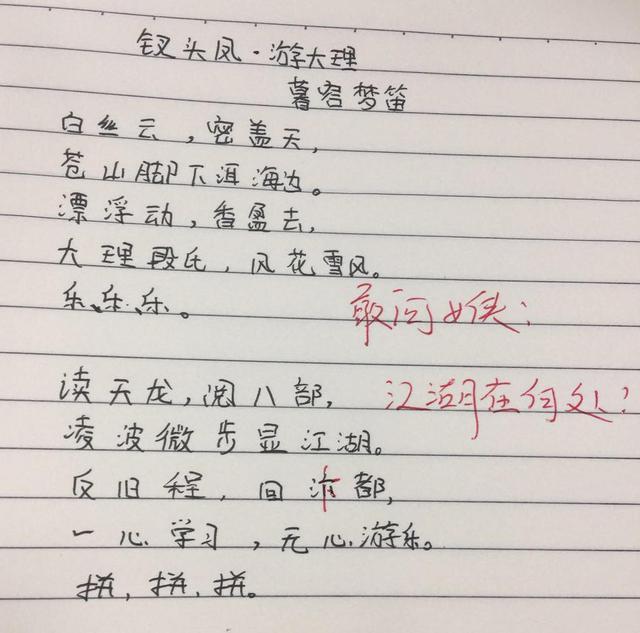 钗头凤·游大理
容梦笛
白丝云，密盖天，
苍山脚下洱海边。
漂浮动，香盈去，
大理段氏，风花雪风。
乐、乐、乐。
敢问女侠：
读天龙，阅八部，
江湖在何处？
凌波微步显江湖。
反旧程，回都，
一心学习，无心游乐。
拼，拼，拼。